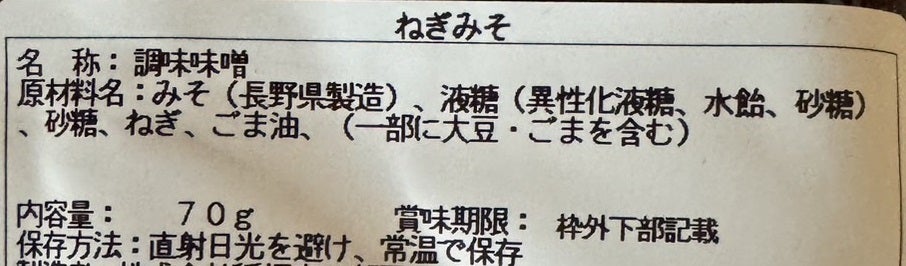 ねぎみそ
名　称：調味味噌
原材料名：みそ（長野県製造）、液糖（異性化液糖、水飴、砂糖）
、砂糖、ねぎ、ごま油、（一部に大豆・ごまを含む）
内容量：　　７０ｇ　　　　　賞味期限：　枠外下部記載
保存方法：直射日光を避け、常温で保存